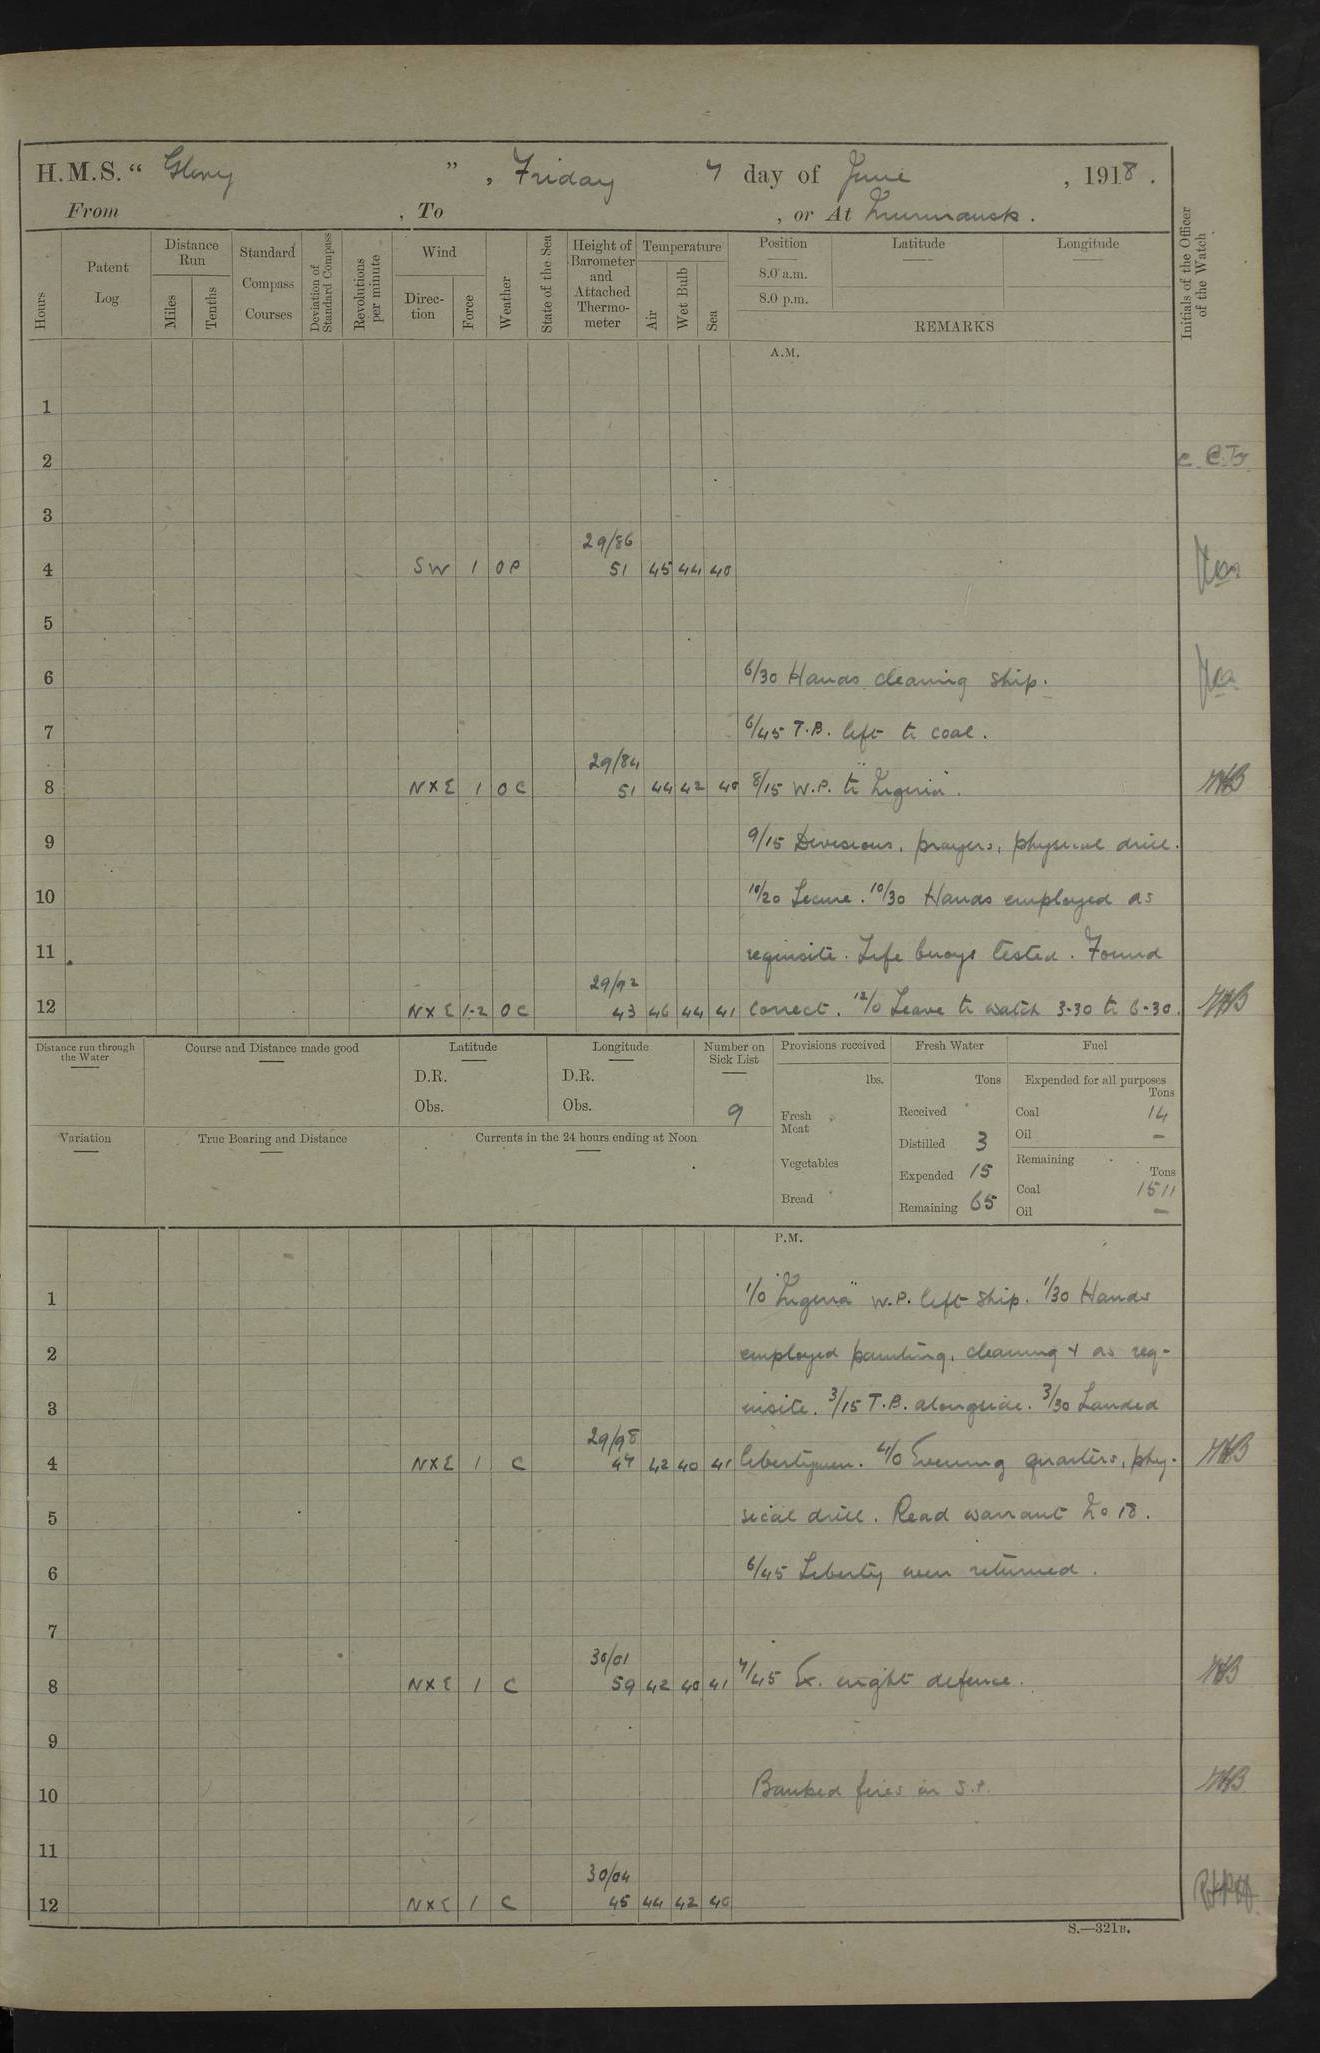 H.M.S. " Glory ", Friday 7 day of June, 1918.
From , To , or At Murmansk.
Hours
Patent Log
Distance Run
Miles
Tenths
Standard Compass Courses
Deviation of Standard Compass
Revolutions per minute
Wind
Direction
Force
Weather
State of the Sea
Height of Barometer and Attached Thermometer
Temperature
Air
Wet Bulb
Sea
Position
8.0 a.m.
8.0 p.m.
Latitude
Longitude
REMARKS
Initials of the Officer of the Watch
A.M.
1
2
3
29/86
4 SW 1 OP 51 45 44 40
5
6 6/30 Hands cleaning ship.
7 6/45 T.B. left to coal.
29/84
8 NXE 1 OC 51 44 42 40 8/15 W.P. to "Nigeria".
9 9/15 Divisions, prayers, physical drill.
10 10/20 Secure. 10/30 Hands employed as
11 requisite. Life buoys tested. Found
29/92
12 NXE 1-2 OC 43 46 44 41 correct. 12/0 Leave to watch 3-30 to 6-30.
Distance run through the Water
Course and Distance made good
Latitude
D.R.
Obs.
Longitude
D.R.
Obs.
Number on Sick List
9
Variation
True Bearing and Distance
Currents in the 24 hours ending at Noon
Provisions received
lbs.
Fresh Meat
Vegetables
Bread
Fresh Water
Tons
Received
Distilled 3
Expended 15
Remaining 65
Fuel
Expended for all purposes
Tons
Coal 14
Oil –
Remaining
Tons
Coal 1511
Oil –
P.M.
1 1/0 "Nigeria" W.P. left ship. 1/30 Hands
2 employed painting, cleaning & as req-
3 uisite. 3/15 T.B. alongside. 3/30 Landed
29/98
4 NXE 1 C 47 42 40 41 libertymen. 4/0 Evening quarters, phy-
5 sical drill. Read warrant No 18.
6 6/45 Liberty men returned.
7
30/01
8 NXE 1 C 59 42 40 41 7/45 Ex. night defence.
9
10 Banked fires in S.P.
11
30/04
12 NXE 1 C 45 44 42 40
S.—321B.